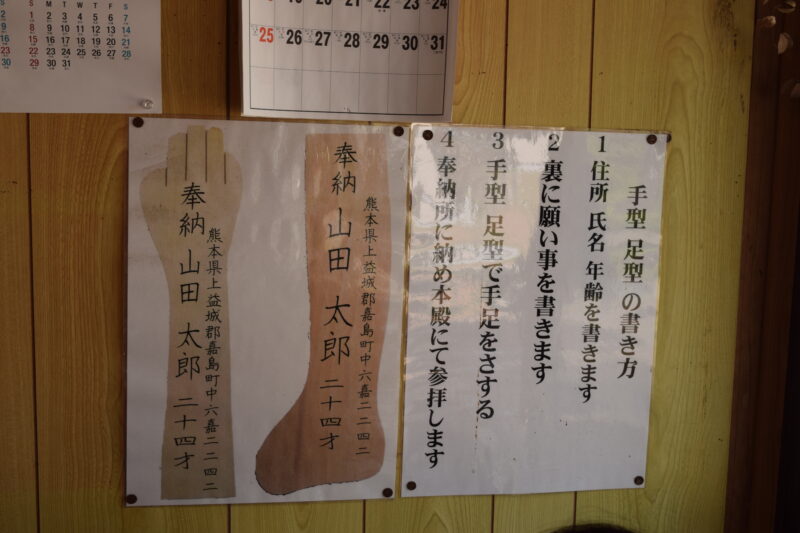 S M T W T F S
1 2 3 4 5 6 7
9 8 9 10 11 12 13 14
16 15 16 17 18 19 20 21
23 22 23 24 25 26 27 28
30 29 30 31
22 23 24
25 26 27 28 29 30 31
手型 足型 の書き方
1 住所 氏名 年齢を書きます
2 裏に願い事を書きます
3 手型 足型で手足をさする
4 奉納所に納め本殿にて参拝します
熊本県上益城郡嘉島町中六嘉二二四二
奉納 山田 太郎 二十四才
熊本県上益城郡嘉島町中六嘉二二四二
奉納 山田 太郎 二十四才